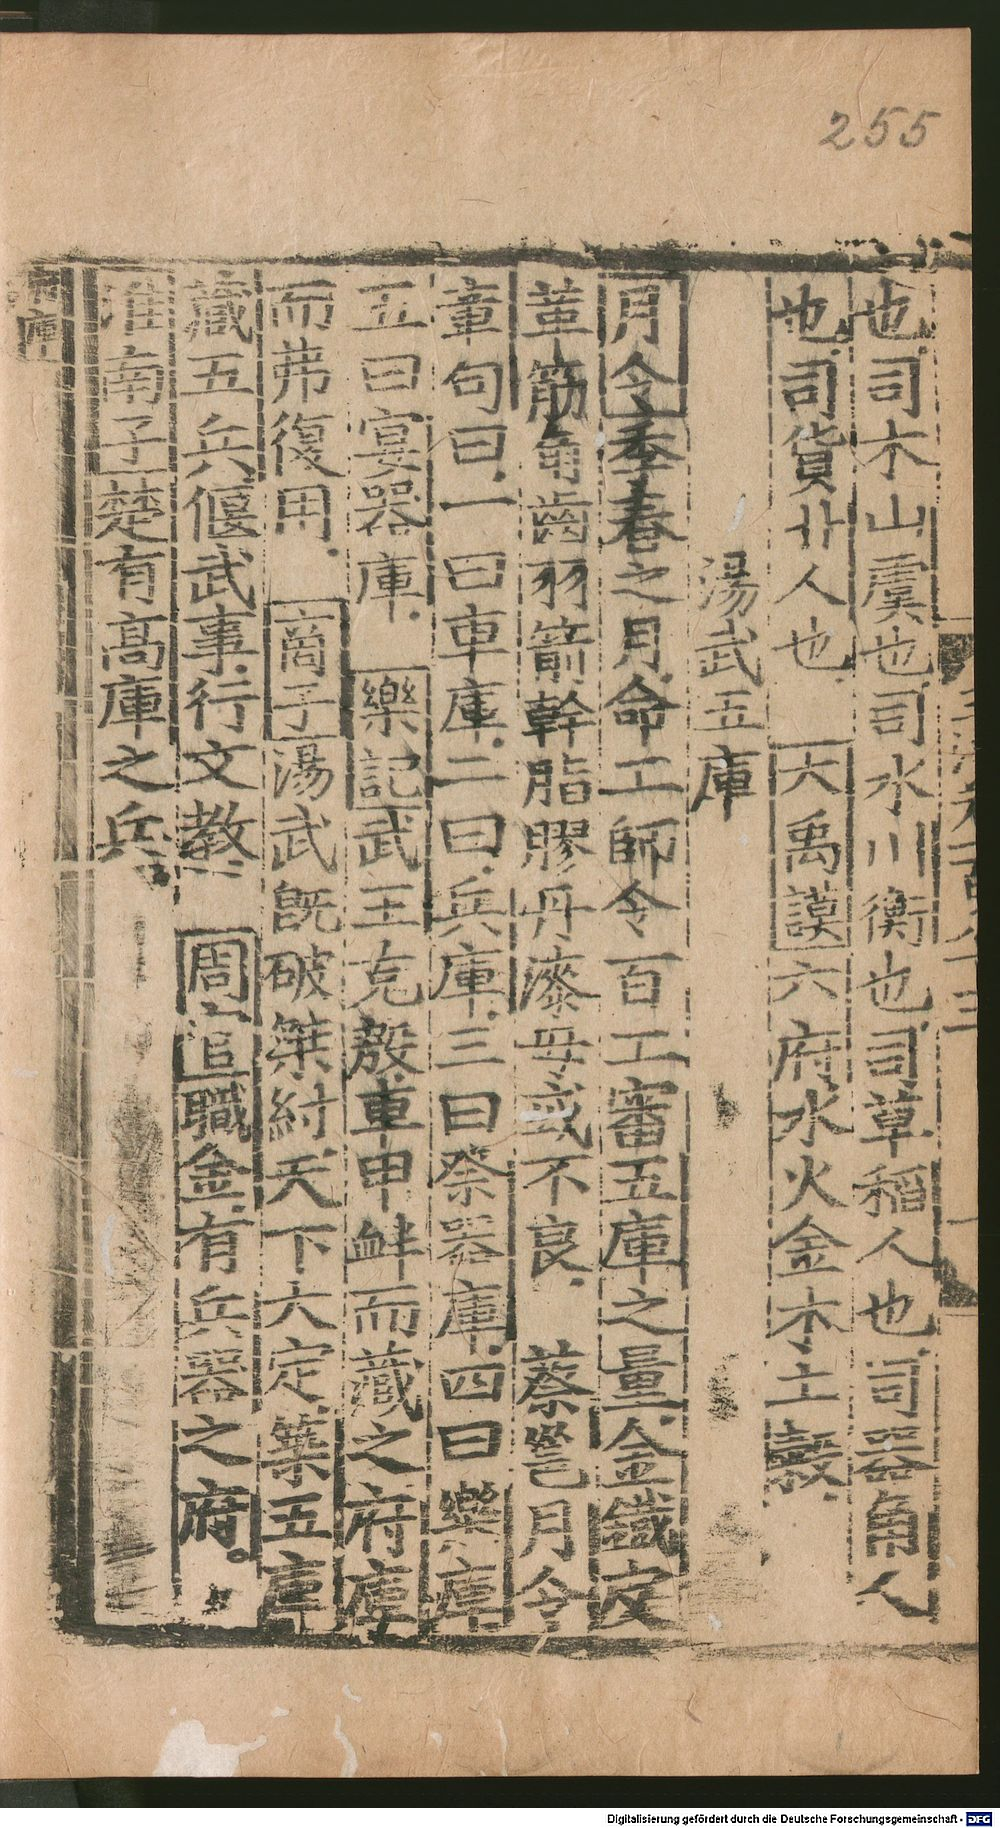 255
也司木山虞也司水川衡也司草稻人也司器角人
也司貨廾人也 大禹謨六府水火金木土穀
湯武五庫
月令季春之月命工師令百工審五庫之量金鐵皮
革筋角齒羽箭幹脂膠丹漆毋或不良 蔡邕月令
章句曰一曰車庫二曰兵庫三曰祭器庫四曰樂庫
五曰宴器庫 樂記武王克殷車甲衅而藏之府庫
而弗復用 商子湯武旣破桀紂天下大定築五庫
藏五兵偃武事行文教 周官職金有兵器之府
淮南子楚有高庫之兵
Digitalisierung gefördert durch die Deutsche Forschungsgemeinschaft - DFG